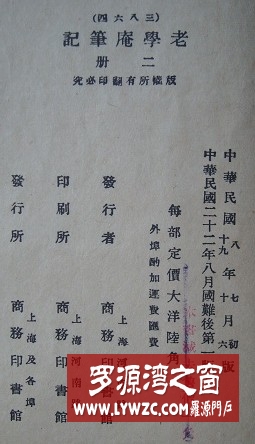 （三八六四）
老學庵筆記
二冊
版權所有翻印必究
中華民國八年七月初版
十九年十月六版
中華民國二十二年八月國難後第一版
每部定價大洋陸角
外埠酌加運費匯費
發行者 上海河
商務印書館
印刷所 上海河南
商務印書館
發行所 上海及各埠
商務印書館
罗源湾之窗
WWW.LYWZC.COM羅源門戶